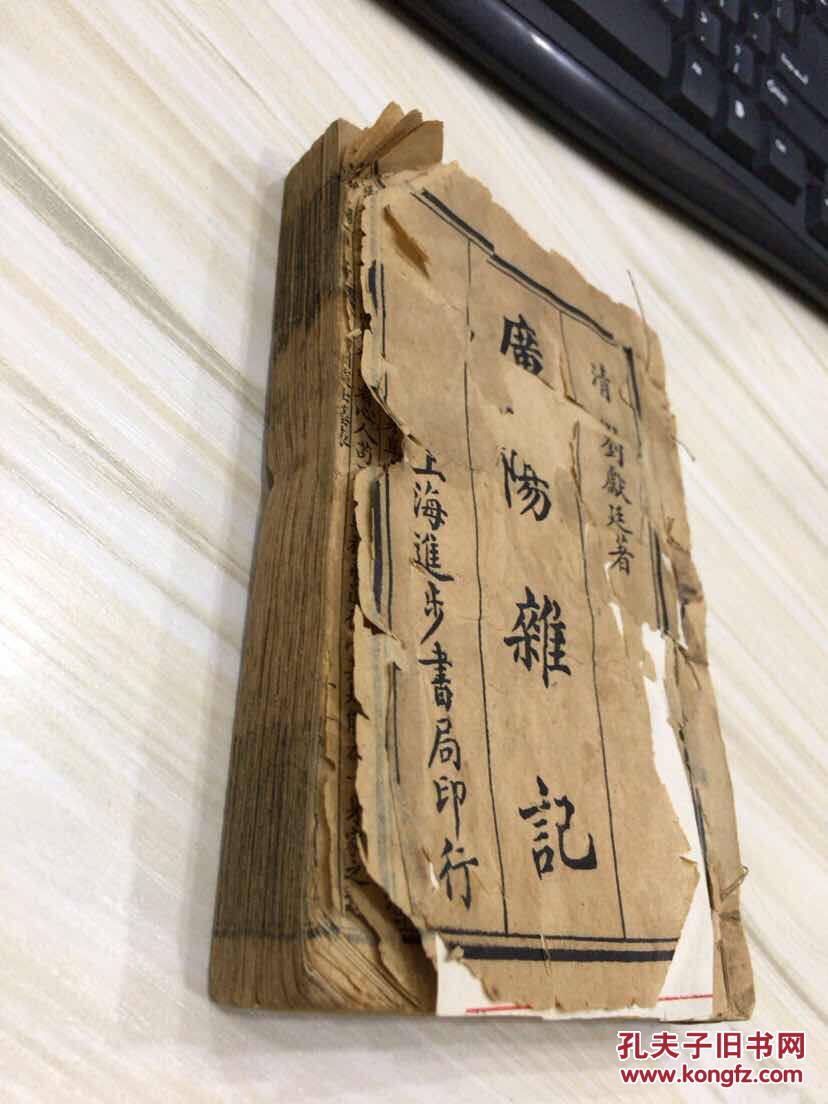 清 劉獻廷著
廣陽雜記
上海進步書局印行
孔夫子旧书网
www.kongfz.com